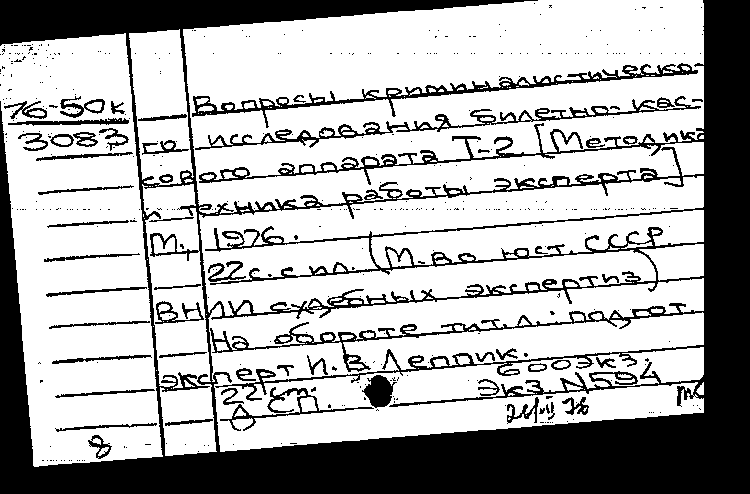 76-50к
3083
Вопросы криминалистическо-
го исследования билетно-кас-
сового аппарата Т-2 [Методика
и техника работы эксперта]
М., 1976.
22 с. с ил. (М-во юст. СССР.
ВНИИ судебных экспертиз)
На обороте тит. л.: подгот.
эксперт И.В. Леппик.
22 см. 600 экз.
СП. Экз. N594
8